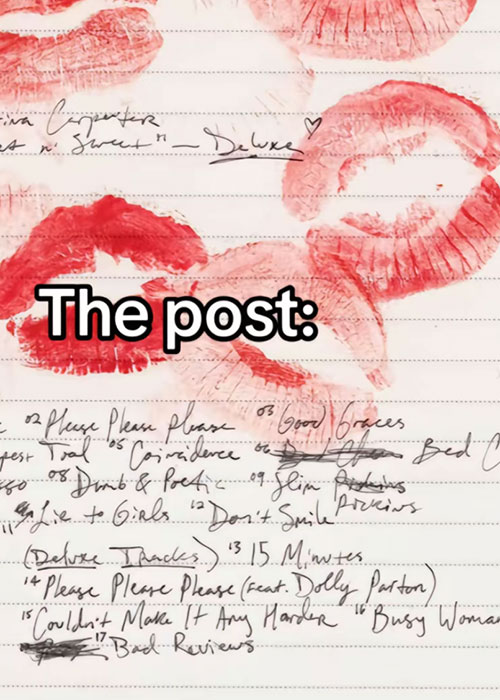 ina Carpenter
t n' Sweet" — Deluxe ♡
The post:
02 Please Please Please 03 Good Graces
pest Tral 05 Coincidence 06 Bed C
sso 08 Dumb & Poetic 09 Slim
Pickins
11 Lie to Girls 12 Don't Smile
(Deluxe Tracks) 13 15 Minutes
14 Please Please Please (feat. Dolly Parton)
15 Couldn't Make It Any Harder 16 Busy Woma
17 Bad Reviews